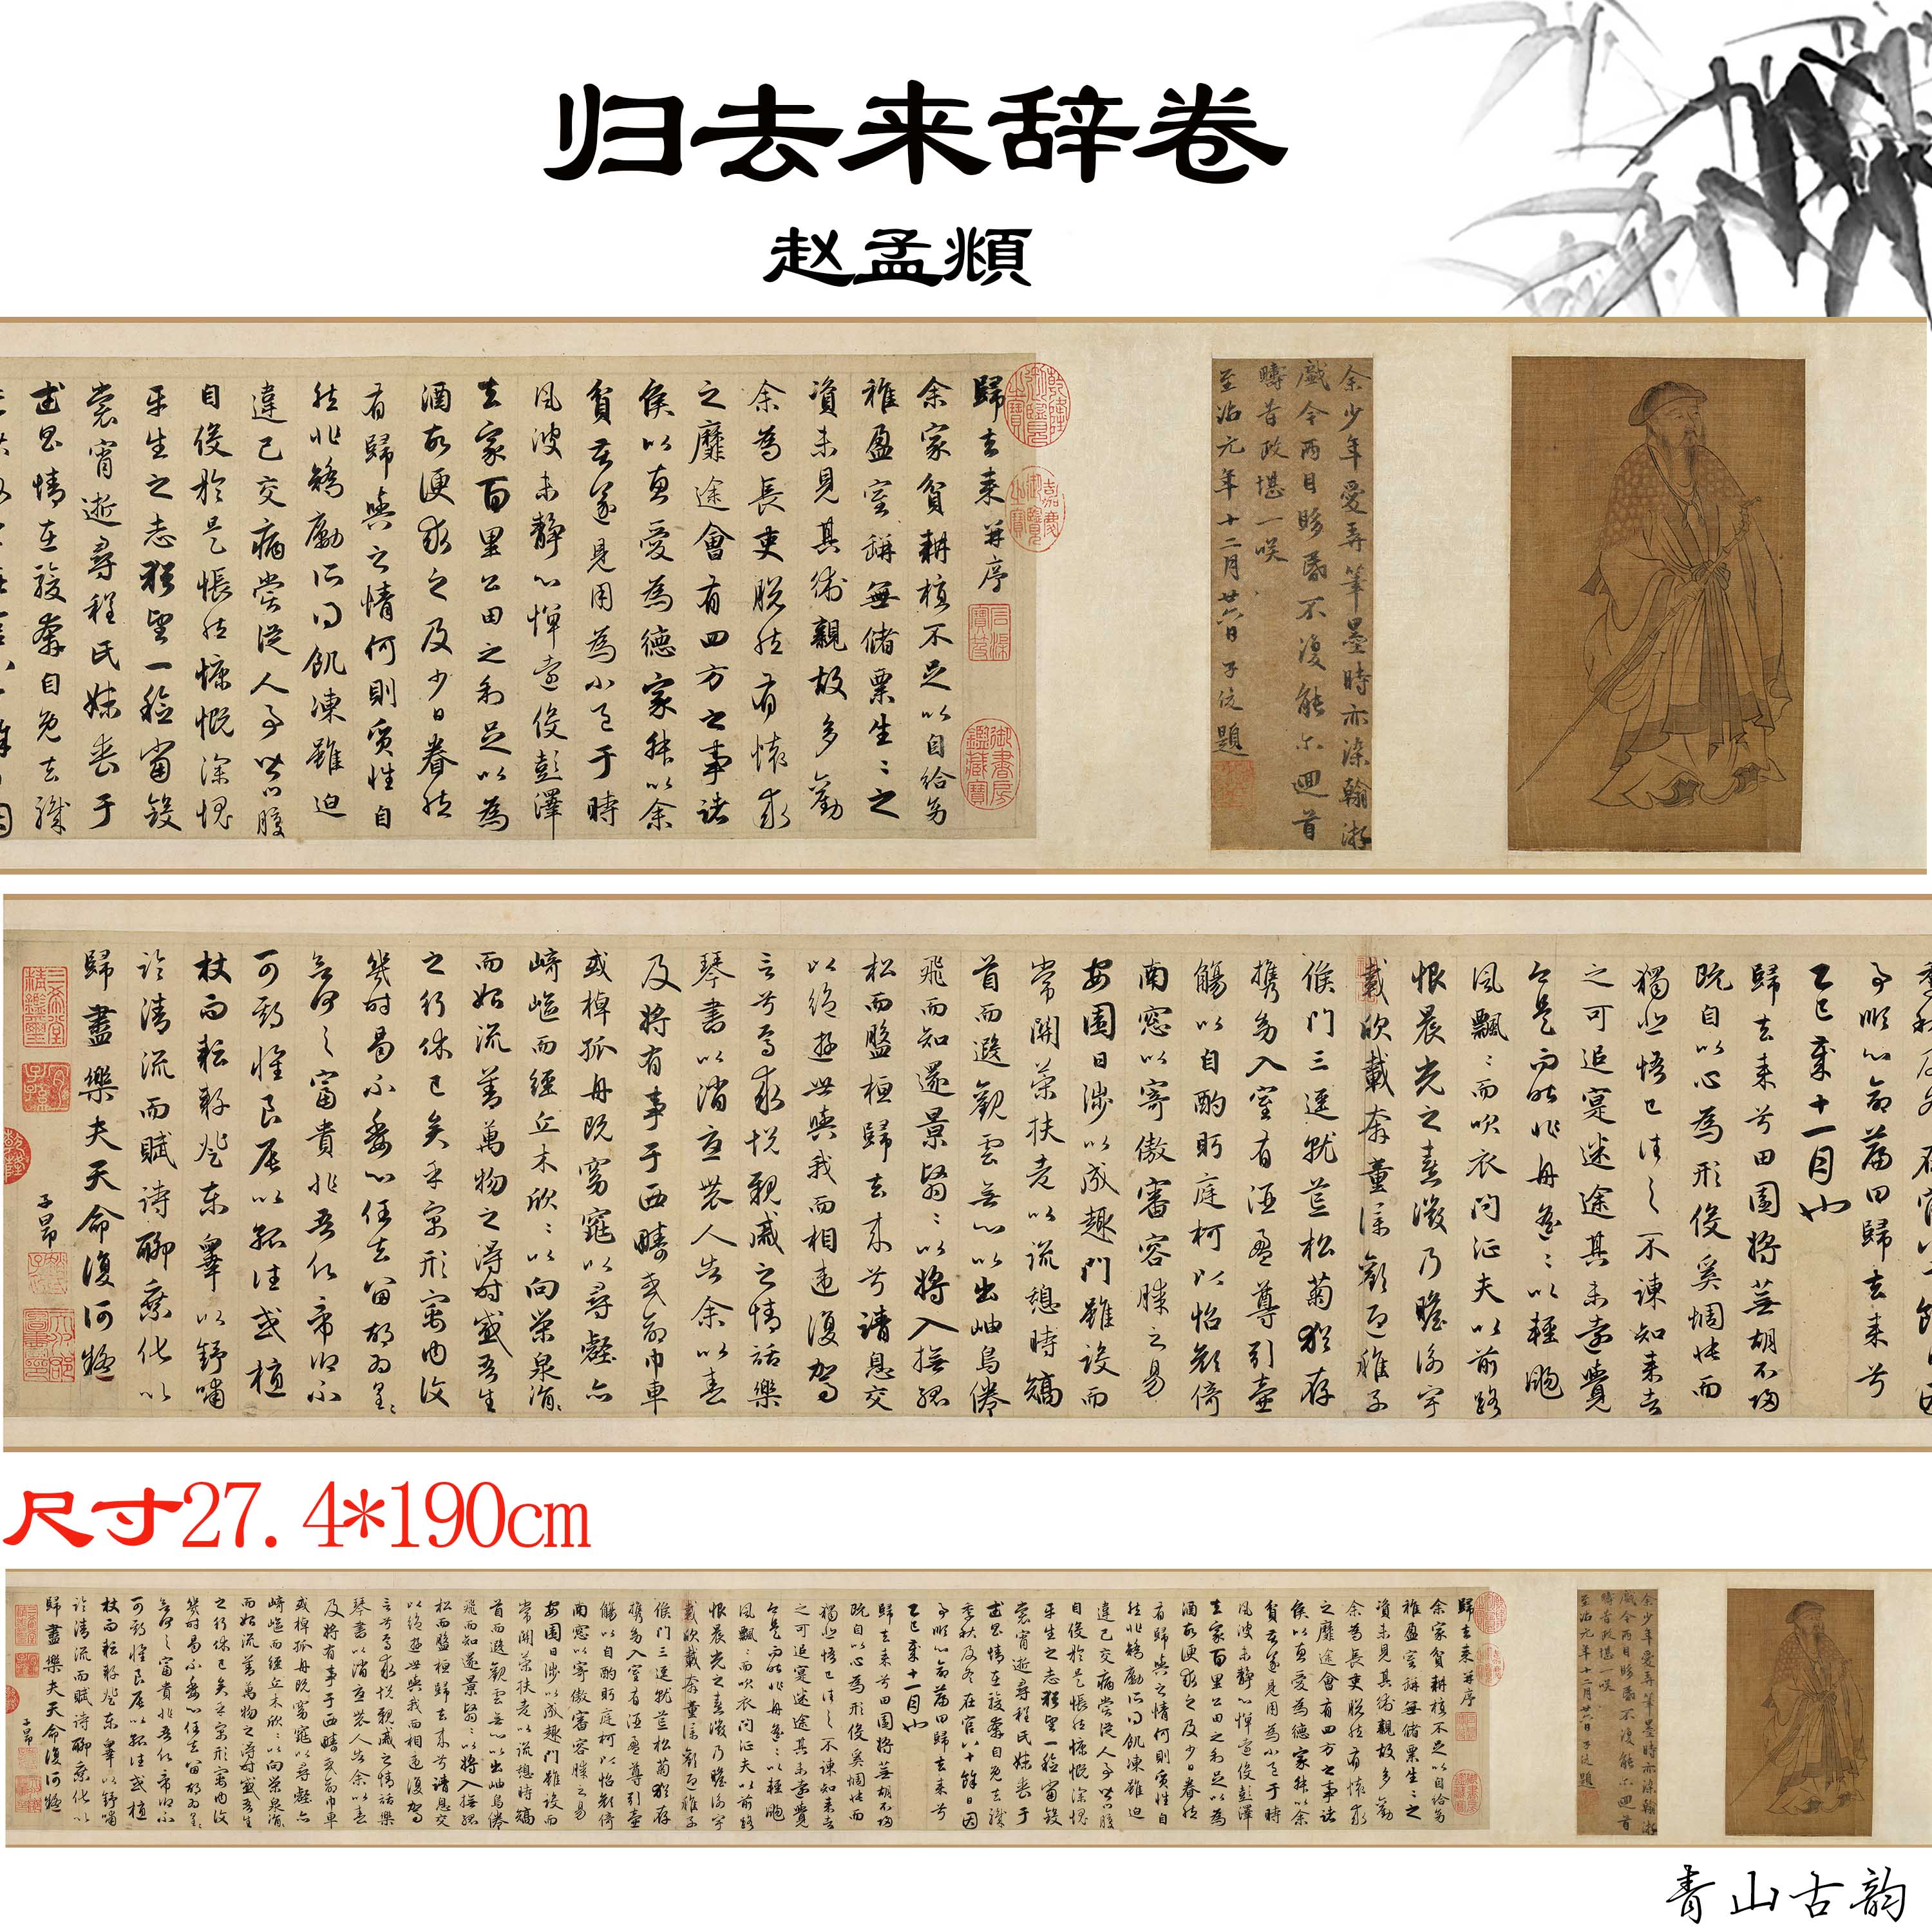 归去来辞卷
赵孟頫
余少年愛弄筆墨時亦染翰游
戲今两目眵昏不復能尔迴首
疇昔政堪一咲
至治元年十二月廿六日 子俊題
歸去来并序
余家貧耕植不足以自給幼
稚盈室缾無儲粟生々之
資未見其術親故多勸
余為長吏脱然有懷求
之靡途會有四方之事諸
侯以惠愛為德家叔以余
貧苦遂見用為小邑于時
風波未静心憚遠役彭澤
去家百里公田之利足以為
酒故便求之及少日眷然
有歸與之情何則質性自
然非矯勵所得飢凍雖迫
違己交病嘗從人事皆口腹
自役於是悵然慷慨深愧
平生之志猶望一稔當斂
裳宵逝尋程氏妹喪于
武昌情在駿奔自免去職
季秋及冬在官八十餘日因
事順心命篇曰歸去来兮
乙巳歲十一月也
歸去来兮田園将蕪胡不歸
既自以心為形役奚惆悵而
獨悲悟已往之不諫知来者
之可追寔迷途其未遠覺
今是而昨非舟遙々以輕颺
風飄々而吹衣問征夫以前路
恨晨光之熹微乃瞻衡宇
載欣載奔童僕歡迎稚子
候門三逕就荒松菊猶存
携幼入室有酒盈尊引壺
觴以自酌眄庭柯以怡顏倚
南窓以寄傲審容膝之易
安園日涉以成趣門雖設而
常關策扶老以流憩時矯
首而遐觀雲無心以出岫鳥倦
飛而知還景翳々以將入撫孤
松而盤桓歸去来兮請息交
以絕遊世與我而相違復駕
言兮焉求悦親戚之情話樂
琴書以消憂農人告余以春
及将有事于西疇或命巾車
或棹孤舟既窈窕以尋壑亦
崎嶇而經丘木欣々以向榮泉涓々
而始流善萬物之得時感吾生
之行休已矣乎寓形宇内復
幾時曷不委心任去留胡為遑々
兮何之富貴非吾願帝鄉不
可期懷良辰以孤往或植
杖而耘耔登東臯以舒嘯
臨清流而賦詩聊乘化以
歸盡樂夫天命復何疑
子昂
尺寸27.4*190cm
青山古韵